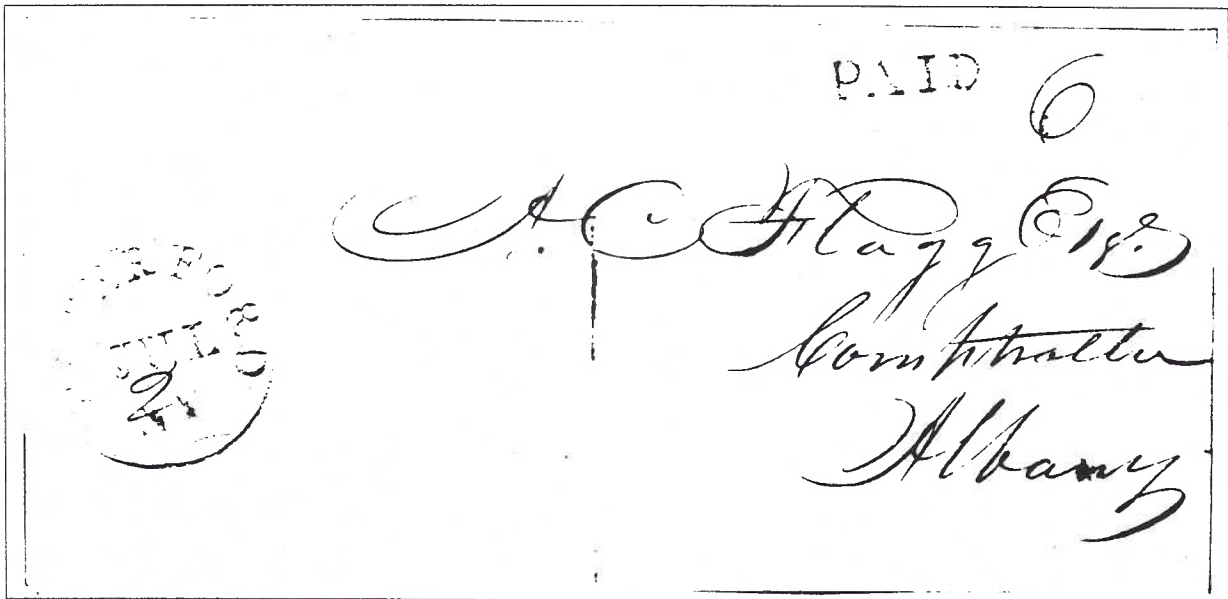 PAID 6
A. C. Flagg Esqr.
Comptroller
Albany
JUL
2